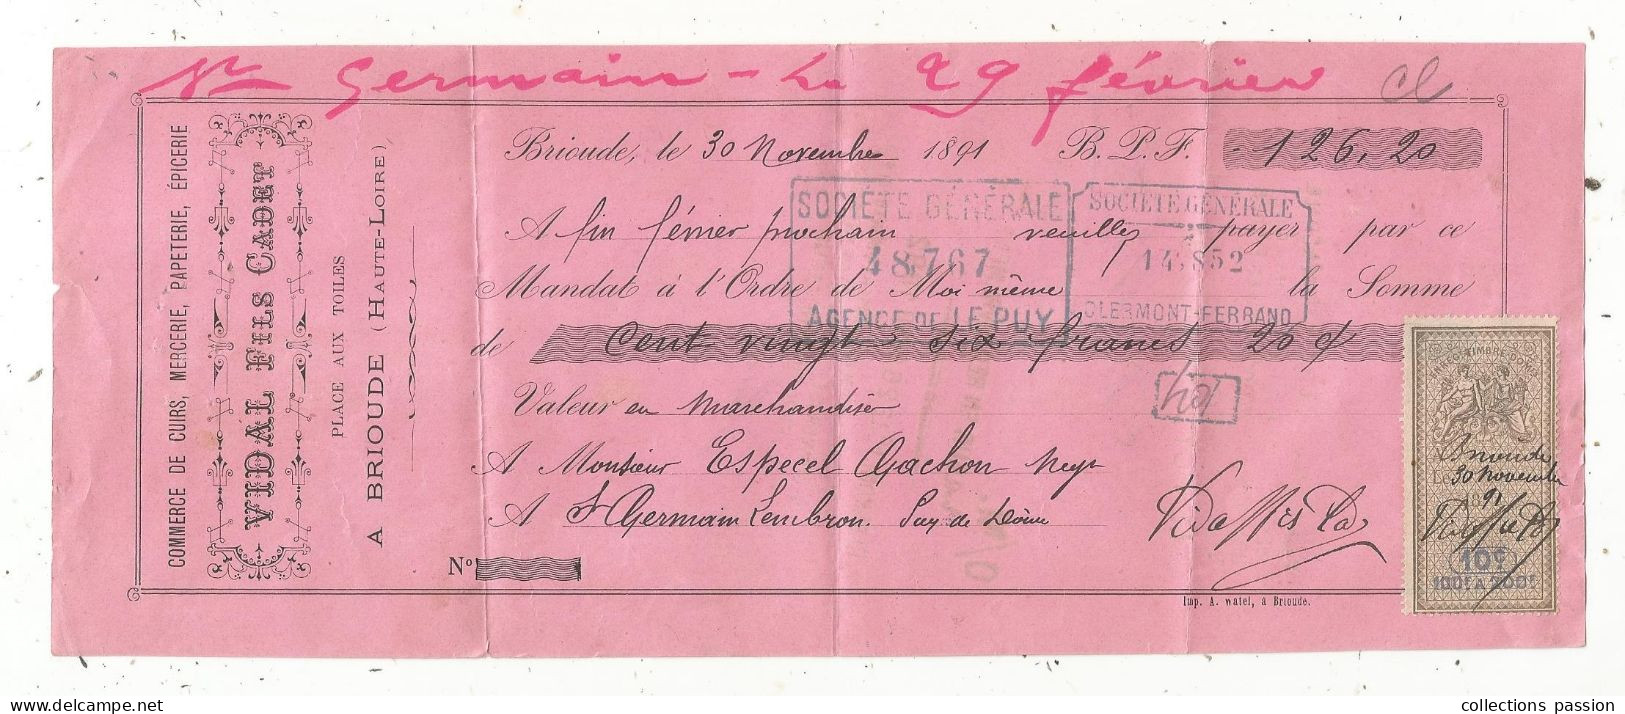 St Germain - Le 29 février
COMMERCE DE CUIRS, MERCERIE, PAPETERIE, ÉPICERIE
VIDAL FILS CADET
PLACE AUX TOILES
A BRIOUDE (HAUTE-LOIRE)
Brioude, le 30 Novembre 1891 B.P.F. - 126,20
A fin février prochain veuillez payer par ce
Mandat à l'Ordre de Moi même la Somme
de Cent vingt six francs 20 c
Valeur en Marchandise
A Monsieur Especel Gachon Negt
A St Germain Lembron. Puy de Dôme
Vidal fils Cadet
No
Imp. A. Watel, a Brioude.
SOCIÉTÉ GÉNÉRALE
48,767
AGENCE DE LE PUY
SOCIÉTÉ GÉNÉRALE
14,852
CLERMONT-FERRAND
104
Brioude
Le 30 Novembre
1891
10c
100F A 200F
collections passion